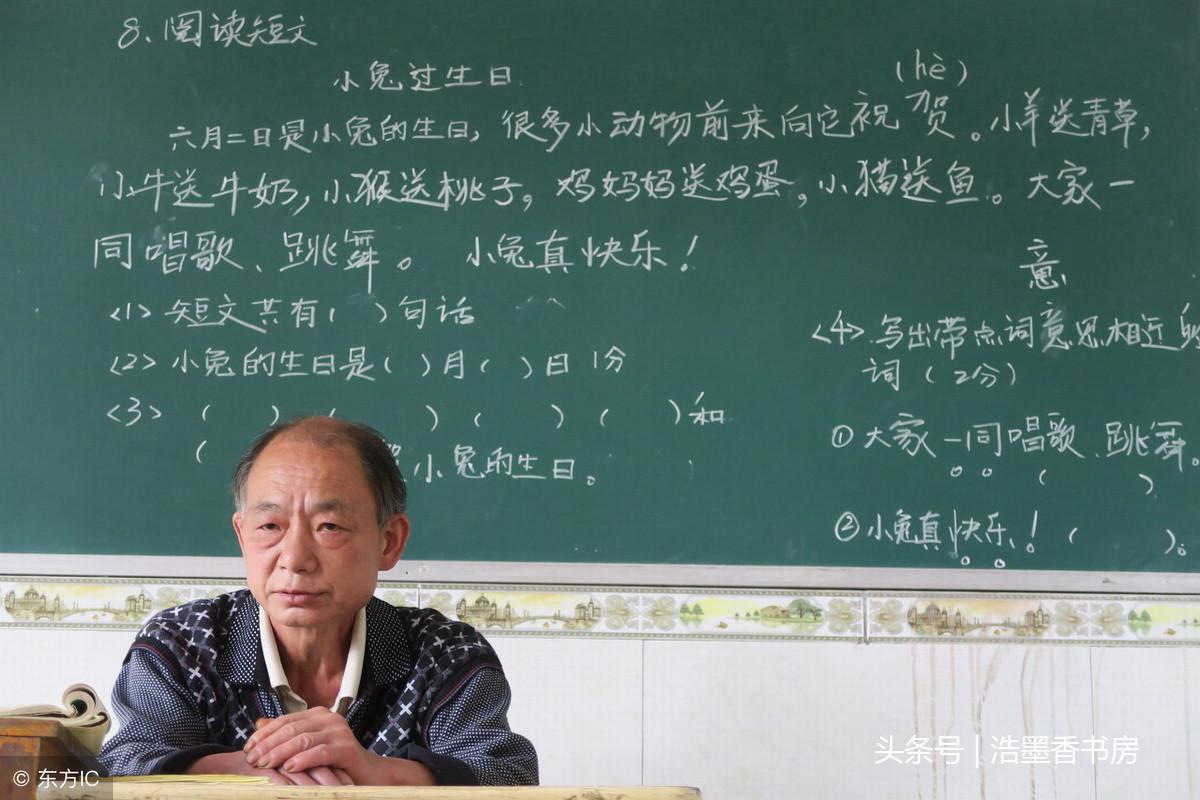 8、阅读短文
小兔过生日
(hè)
六月二日是小兔的生日，很多小动物前来向它祝贺。小羊送青草，
小牛送牛奶，小猴送桃子。鸡妈妈送鸡蛋。小猫送鱼。大家一
同唱歌、跳舞。 小兔真快乐！
<1> 短文共有( )句话
<2> 小兔的生日是( )月( )日 1分
<3> ( ) ( ) ( ) ( )和
( 小兔的生日。
意
<4>.写出带点词意思相近的
词 (2分)
①大家一同唱歌、跳舞。
( )
②小兔真快乐！( )。
头条号 | 浩墨香书房
© 东方IC